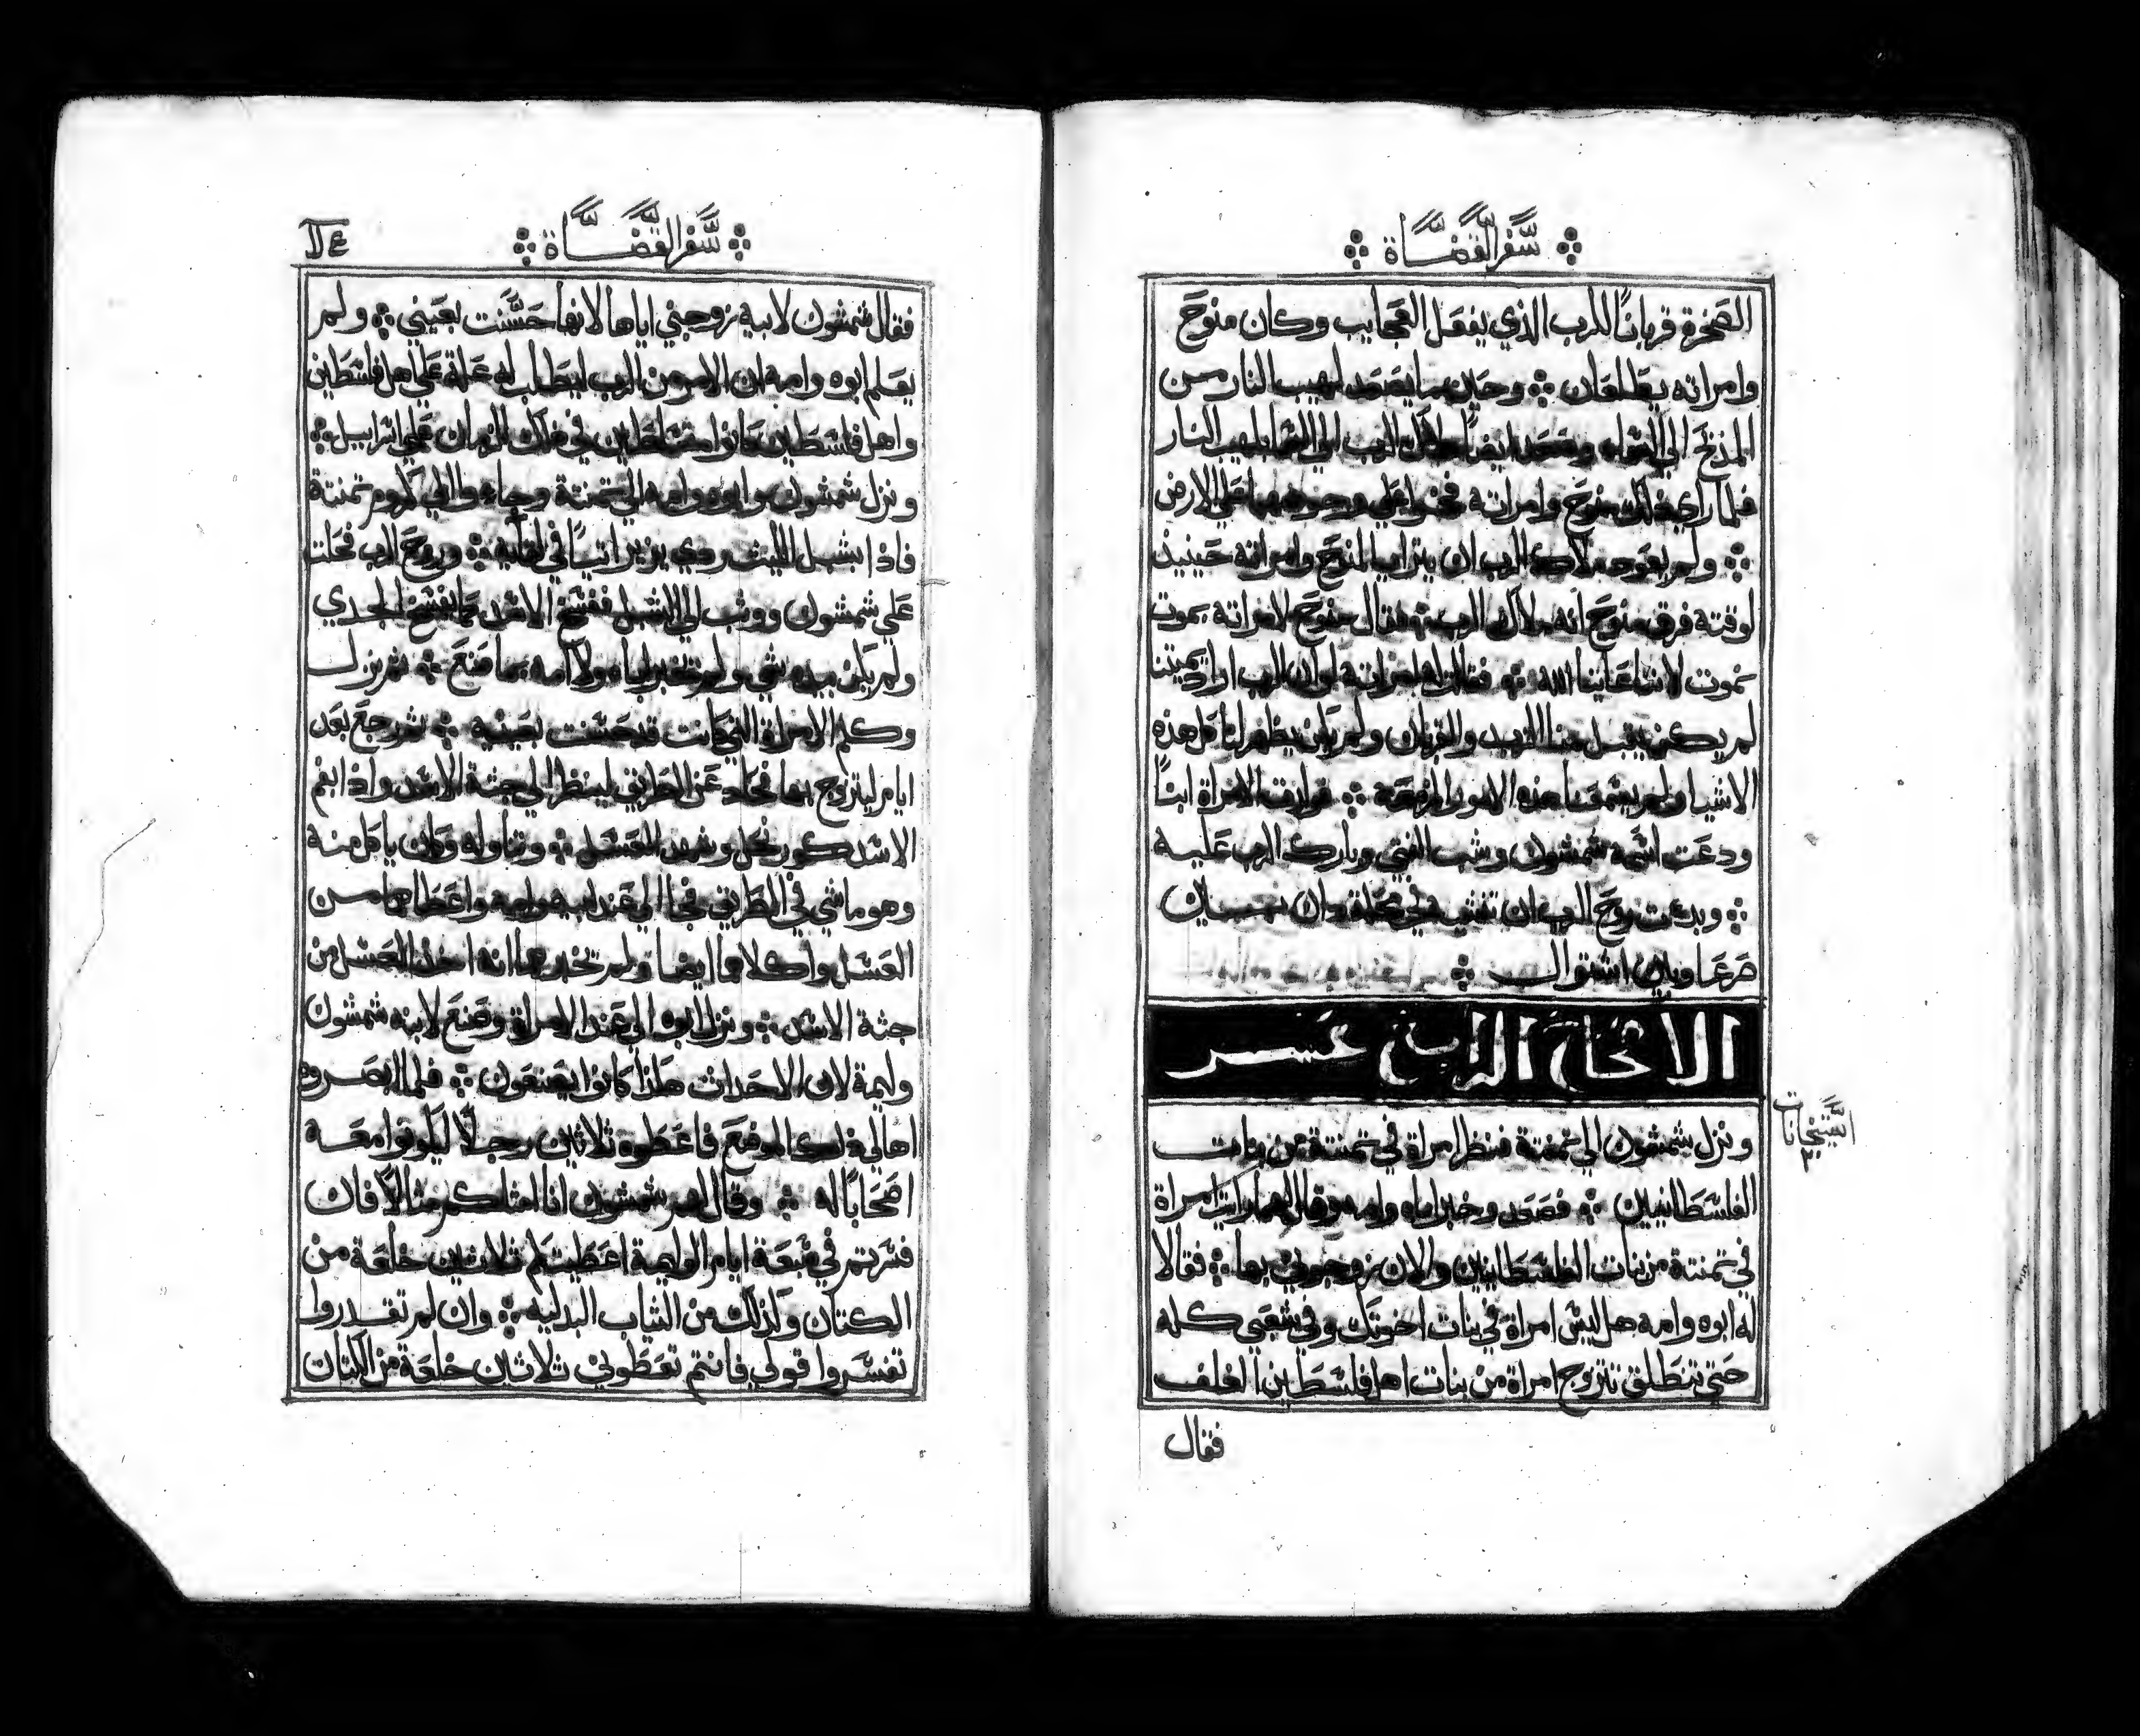 سفر القضاة
الصخرة قربانًا للرب الذي يفعل العجايب وكان منوح
وامراته يطلعان ❖ وحين ما يصعد لهيب النار من
المذبح الي السماء وصعد ايضًا ملاك الرب الي السما بلهيب النار
فلما راي ذلك منوح وامراته فخروا علي وجوههما علي الارض
❖ ولم يعود ملاك الرب ان يترايا لمنوح وامراته حينيذ
لوقته فرق منوح انه ملاك الرب ❖ فقال منوح لامراته بموت
نموت لاننا عاينا الله ❖ فقالت له امراته لو ان الرب اراد يميتنا
لم يكن يتقبل منا الزبد والقربان ولم يكن يظهر لنا كل هذه
الاشيا ولم يسمعنا هذه الامور المزمعة ❖ فولدت الامراة ابنًا
ودعت اسمه شمشون وشب الفتي وبارك الرب عليه
❖ وبدت روح الرب ان تمشي في محلة دان بين
صرعا وبين اشتوال ❖
الاصحاح الرابع عشر
ونزل شمشون الي تمنتة فنظر امراة في تمنتة من بنات
الفلسطانيين ❖ فصعد وخبر اباه وامه وقال لهما رايت امراة
في تمنتة من بنات الفلسطانيين والان زوجوني بها ❖ فقالا
له ابوه وامه هل ليس امراة في بنات اخوتك وفي شعبي كله
حتي تنطلق تتزوج امراة من بنات اهل فلسطين الغلف
فقال
سفر القضاة
فقال شمشون لابيه زوجني اياها لانها حسنت بعيني ❖ ولم
يعلم ابوه وامه ان الامر من الرب ليطلب له علة علي اهل فلسطين
واهل فلسطين كانوا متسلطين في ذلك الزمان علي اسراييل ❖
ونزل شمشون وابوه وامه الي تمنتة وجاءوا الي كروم تمنتة
فاذا بشبل الليث ردي يزير اتيًا في لقايه ❖ وروح الرب فحلت
علي شمشون ووثب الي الشبل ففسخ الاسد كما يفسخ الجدي
ولم يكن بيده شي ولم يخبر اباه ولا امه بما صنع ❖ ثم نزل
وكلم الامراة التي كانت قد حسنت بعينيه ❖ ثم رجع بعد
ايام ليتزوج بها فحاد عن الطريق لينظر الي جثة الاسد واذا بفم
الاسد كور نحل وشهد العسل ❖ وتناوله وكان ياكل منه
وهو ماشي في الطريق فجا الي عند ابيه وامه واعطاهما من
العسل واكلا هما ايضا ولم يخبرهما انه اخذ العسل من
جثة الاسد ❖ ونزل ابوه الي عند الامراة وصنع لابنه شمشون
وليمة لان الاحداث هكذا كانوا يصنعون ❖ فلما ابصروه
اهالي ذلك الموضع فاعطوه ثلاثين رجلًا ليكونوا معه
اصحابًا له ❖ وقال لهم شمشون انا امثل لكم مثالًا فان
فسرتم في سبعة ايام الوليمة اعطيتكم ثلاثين خلعة من
الكتان وكذلك من الثياب البدلية ❖ وان لم تقدروا
تفسروا قولي فانتم تعطوني ثلاثين خلعة من الكتان